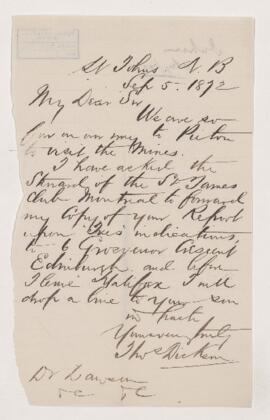 St Johns N.B
Sep 5. 1872
My Dear Sir
We are so
far on our way to Pictou
to visit the Mines.
I have asked the
Steward of the St James
club Montreal to forward
my Copy of your Report
upon indications,
to 6 Grosvenor Crescent
Edinburgh and before
I leave Halifax I will
drop a line to your son
in haste
Yours very truly
Thos
Dr Dawson